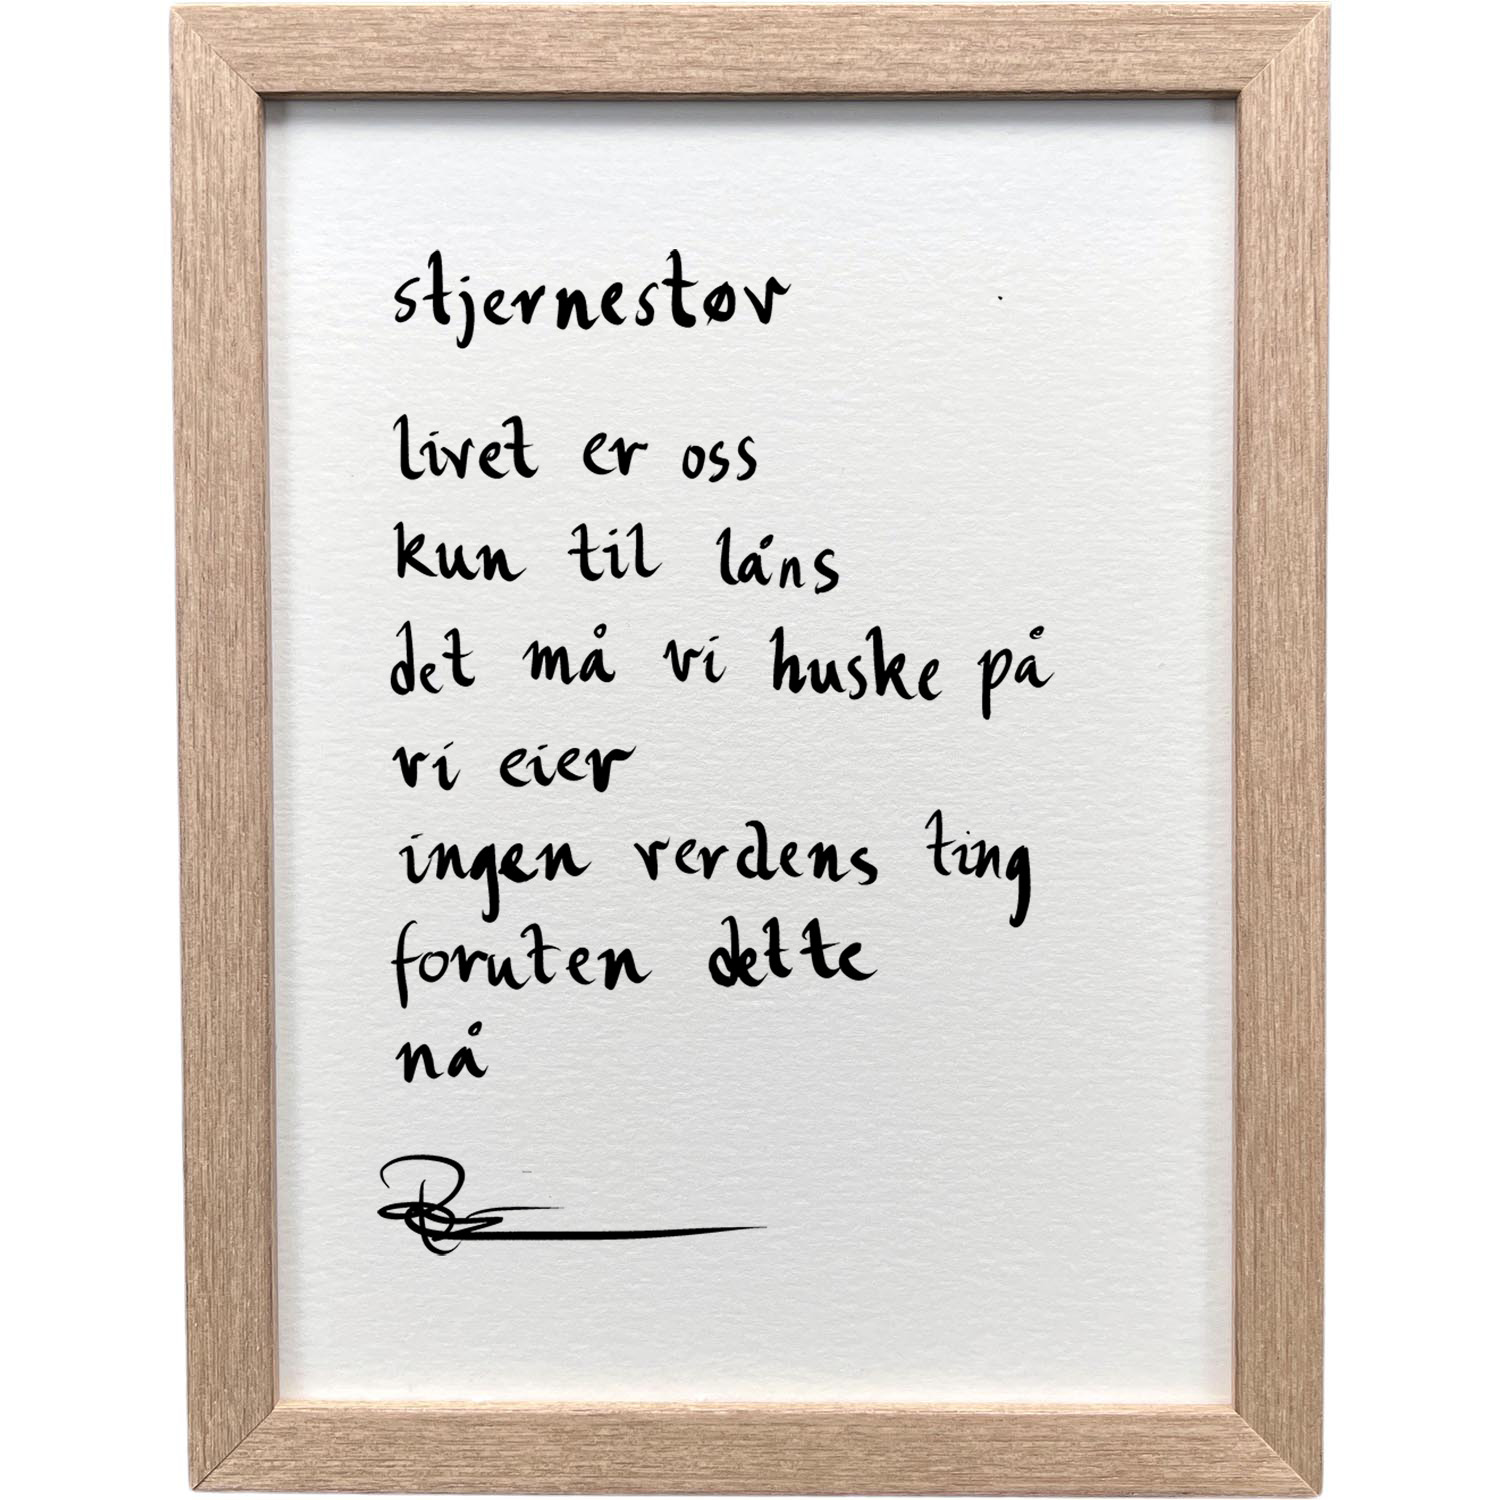 stjernestøv
livet er oss
kun til låns
det må vi huske på
vi eier
ingen verdens ting
foruten dette
nå